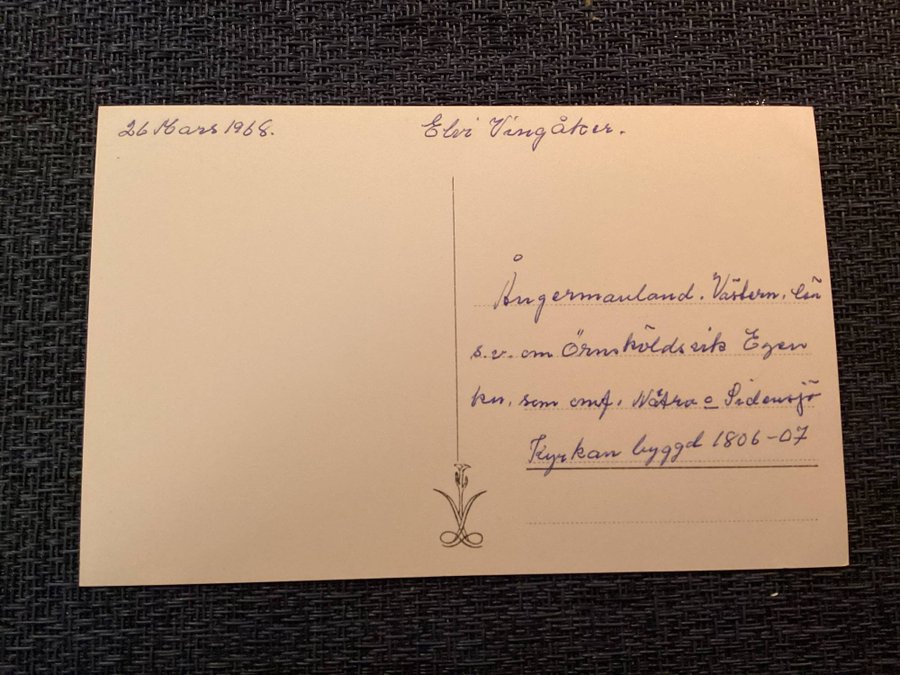 26 Mars 1968.
Elvi Vingåker.
Ångermanland. Västern. län
s.v. om Örnsköldsvik Egen
kn. som omf. Nätra o Sidensjö
Kyrkan byggd 1806-07